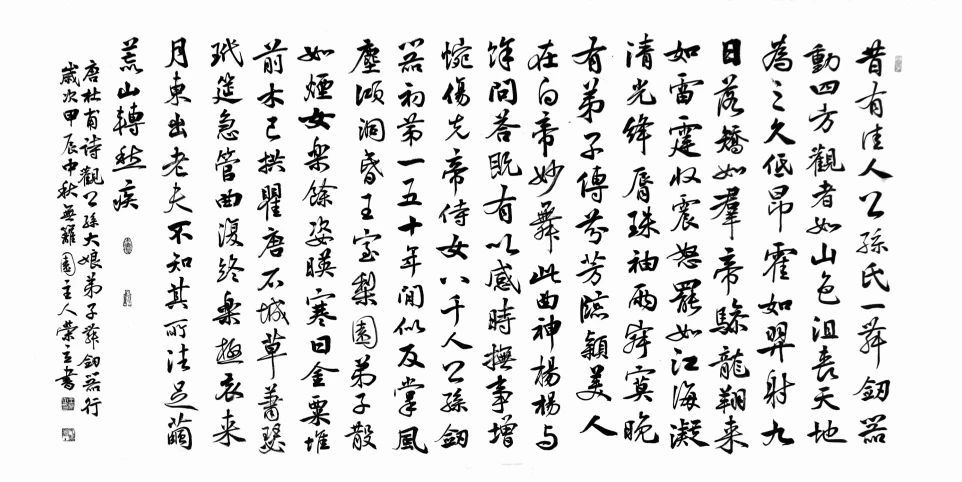 昔有佳人公孫氏一舞劔器
動四方觀者如山色沮喪天地
為之久低昂霍如羿射九
日落矯如羣帝驂龍翔来
如雷霆收震怒罷如江海凝
清光絳脣珠袖兩寂寞晚
有弟子傳芬芳臨穎美人
在白帝妙舞此曲神楊楊与
馀問答既有以感時撫事增
惋傷先帝侍女八千人公孫劔
器初第一五十年間似反掌風
塵澒洞昏王室梨園弟子散
如煙女樂餘姿暎寒日金粟堆
前木已拱瞿唐石城草蕭瑟
玳筵急管曲復終樂極哀来
月東出老夫不知其所往足繭
荒山轉愁疾
唐杜甫詩觀公孫大娘弟子舞劔器行
歲次甲辰中秋無籬園主人榮立書